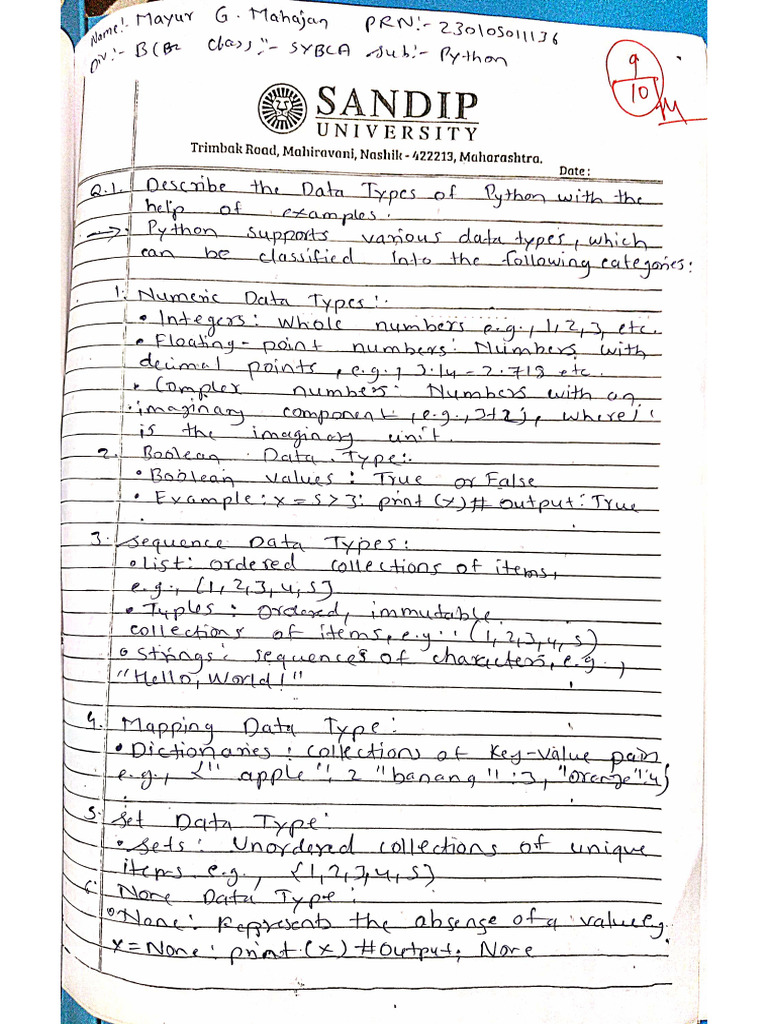 Name:- Mayur G. Mahajan PRN:- 230105011136
Div:- BCB2 class:- SYBCA sub:- Python
9
10
SANDIP
UNIVERSITY
Trimbak Road, Mahiravani, Nashik - 422213, Maharashtra.
Date:
Q.1. Describe the Data Types of Python with the
help of examples.
→ Python supports various data types, which
can be classified into the following categories:
1. Numeric Data Types:
• Integers: Whole numbers e.g., 1, 2, 3, etc.
• Floating-point numbers: Numbers with
decimal points, e.g., 3.14 - 2.718 etc.
• Complex numbers: Numbers with an
imaginary component, e.g., 3+2j, where j
is the imaginary unit.
2. Boolean Data Type:
• Boolean values: True or False
• Example: x = 5 > 3: print (x) # output: True
3. Sequence Data Types:
• List: ordered collections of items,
e.g., [1, 2, 3, 4, 5]
• Tuples: Ordered, immutable
collections of items, e.g.: (1, 2, 3, 4, 5)
• Strings: sequences of characters, e.g.,
"Hello, World!"
4. Mapping Data Type:
• Dictionaries: collections of key-value pain,
e.g., {"apple": 2 "banang": 3, "orenge": 4}
5. Set Data Type:
• Sets: Unordered collections of unique
items e.g., {1, 2, 3, 4, 5}
6. None Data Type:
• None: Represents the absense of a value e.g.
x = None: print (x) # Output: None